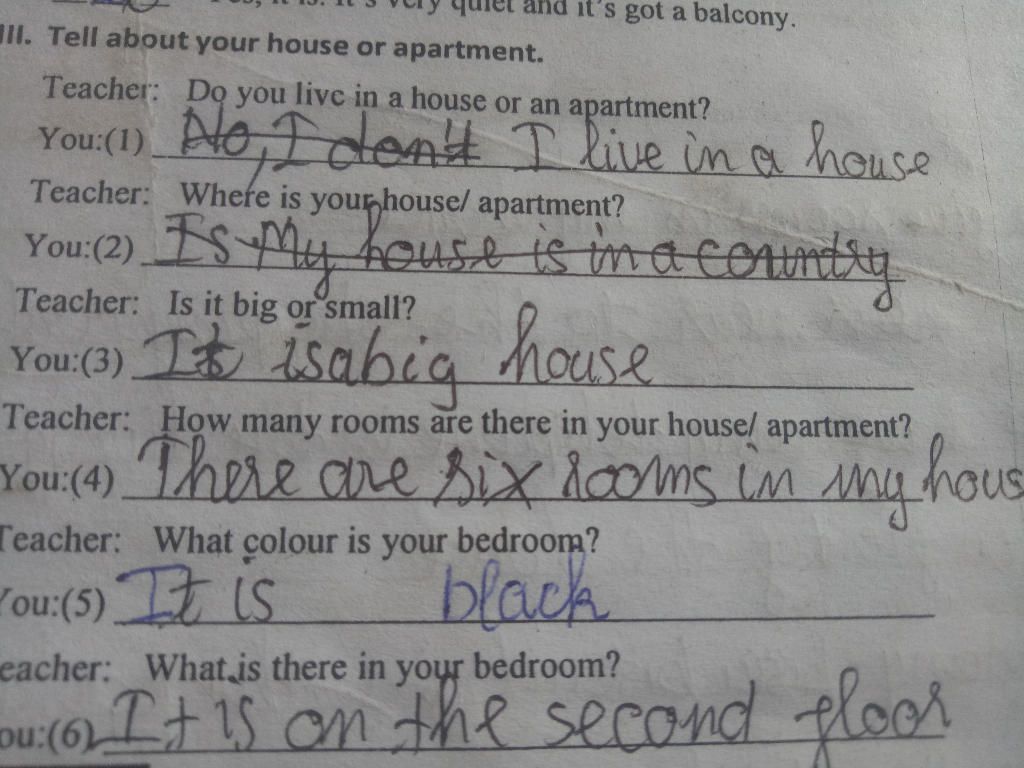 Yes, it is. It's very quiet and it's got a balcony.
III. Tell about your house or apartment.
Teacher: Do you live in a house or an apartment?
You:(1) No, I don't I live in a house
Teacher: Where is your house/ apartment?
You:(2) Is My house is in a country
Teacher: Is it big or small?
You:(3) It is a big house
Teacher: How many rooms are there in your house/ apartment?
You:(4) There are six rooms in my hous
Teacher: What colour is your bedroom?
You:(5) It is black
eacher: What is there in your bedroom?
ou:(6) It is on the second floor